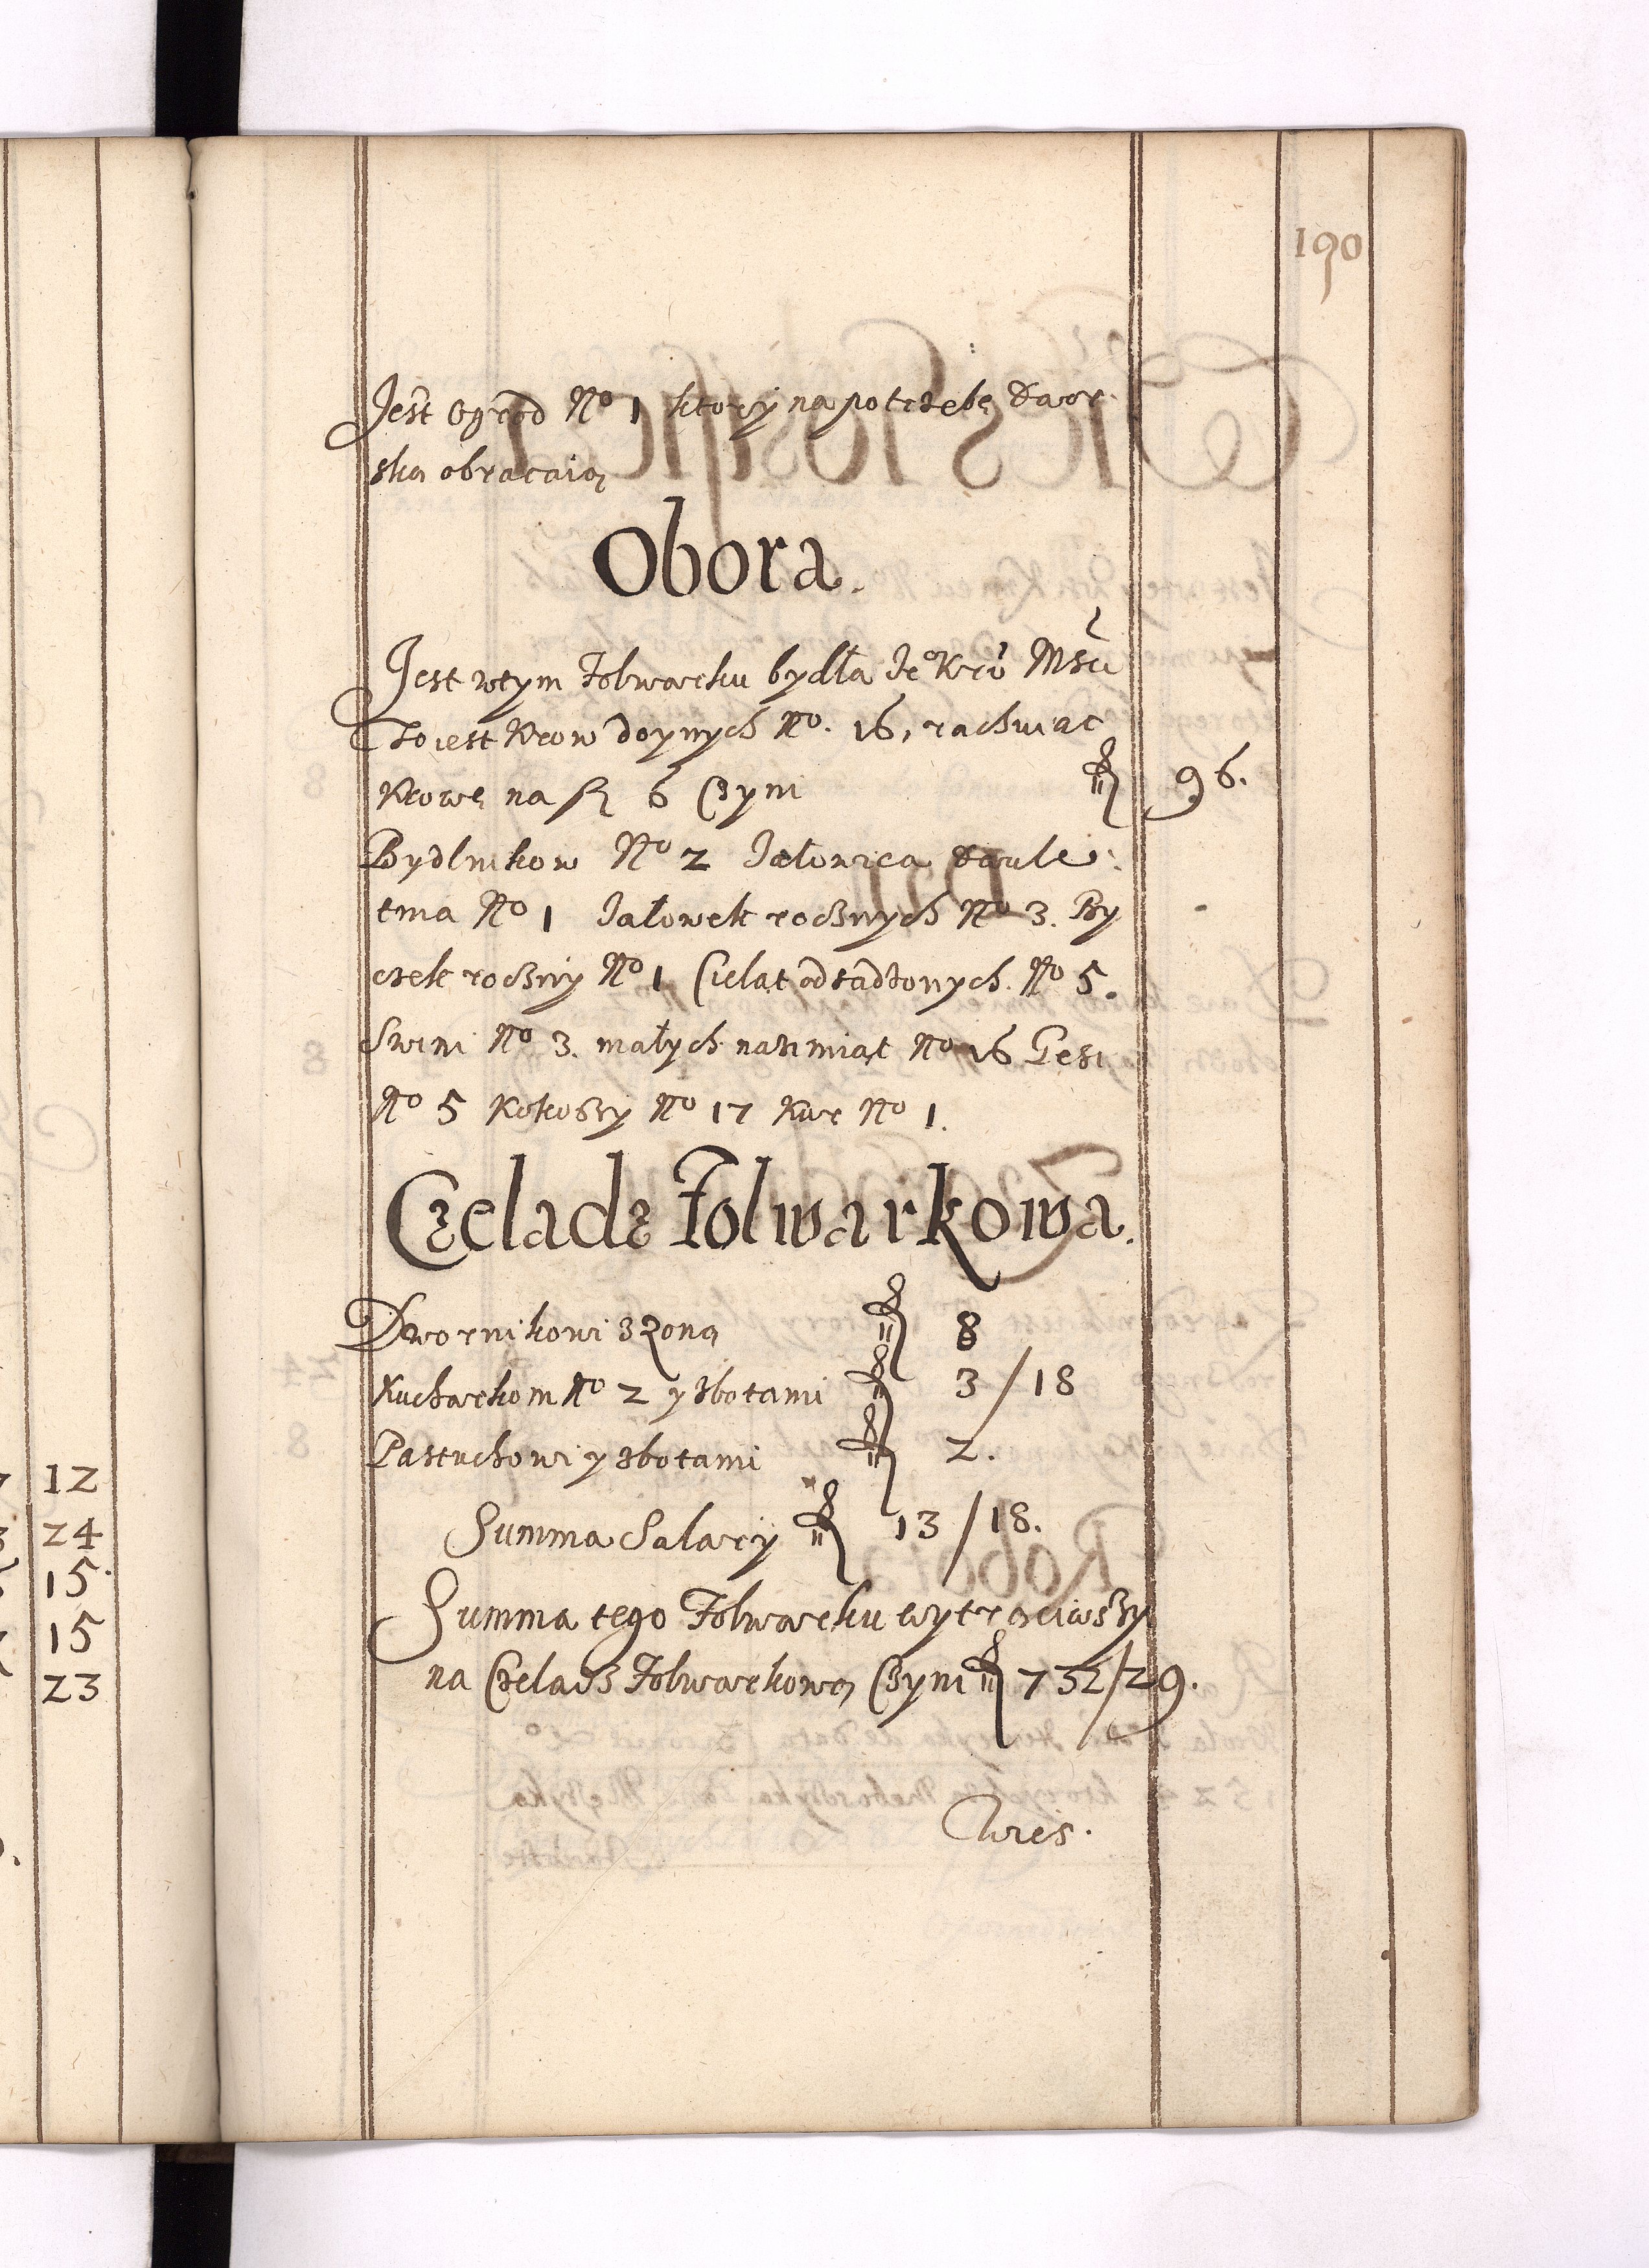 190
Jest Ogrod No 1 ktory na potrzebę dwor-
ską obracaią
Obora.
Jest wtym Folwarku bydła Je° Kró Mści
To iest Krow doynych No. 16, rachuiąc
Krowę na fl 6 Czyni fl 96.
Bydlnikow No 2 Jałowica dwule-
tnia No 1 Jałowek rocznych No 3. By
czek roczny No 1 Cieląt odsadzonych No 5.
Swini No 3. małych nazimiąt No 16 Gęsi
No 5 Kokoszy No 17 Kur No 1.
Czeladz Folwarkowa.
Dwornikowi z Zoną fl 8
Kucharkom No 2 y zbotami fl 3/18
Pastuchowi y zbotami fl 2.
Summa Salary fl 13/18.
Summa tego Folwarku wytrąciwszy
na Czeladz Folwarkową Czyni fl 732/29.
Wies.
12
24
15
15
23